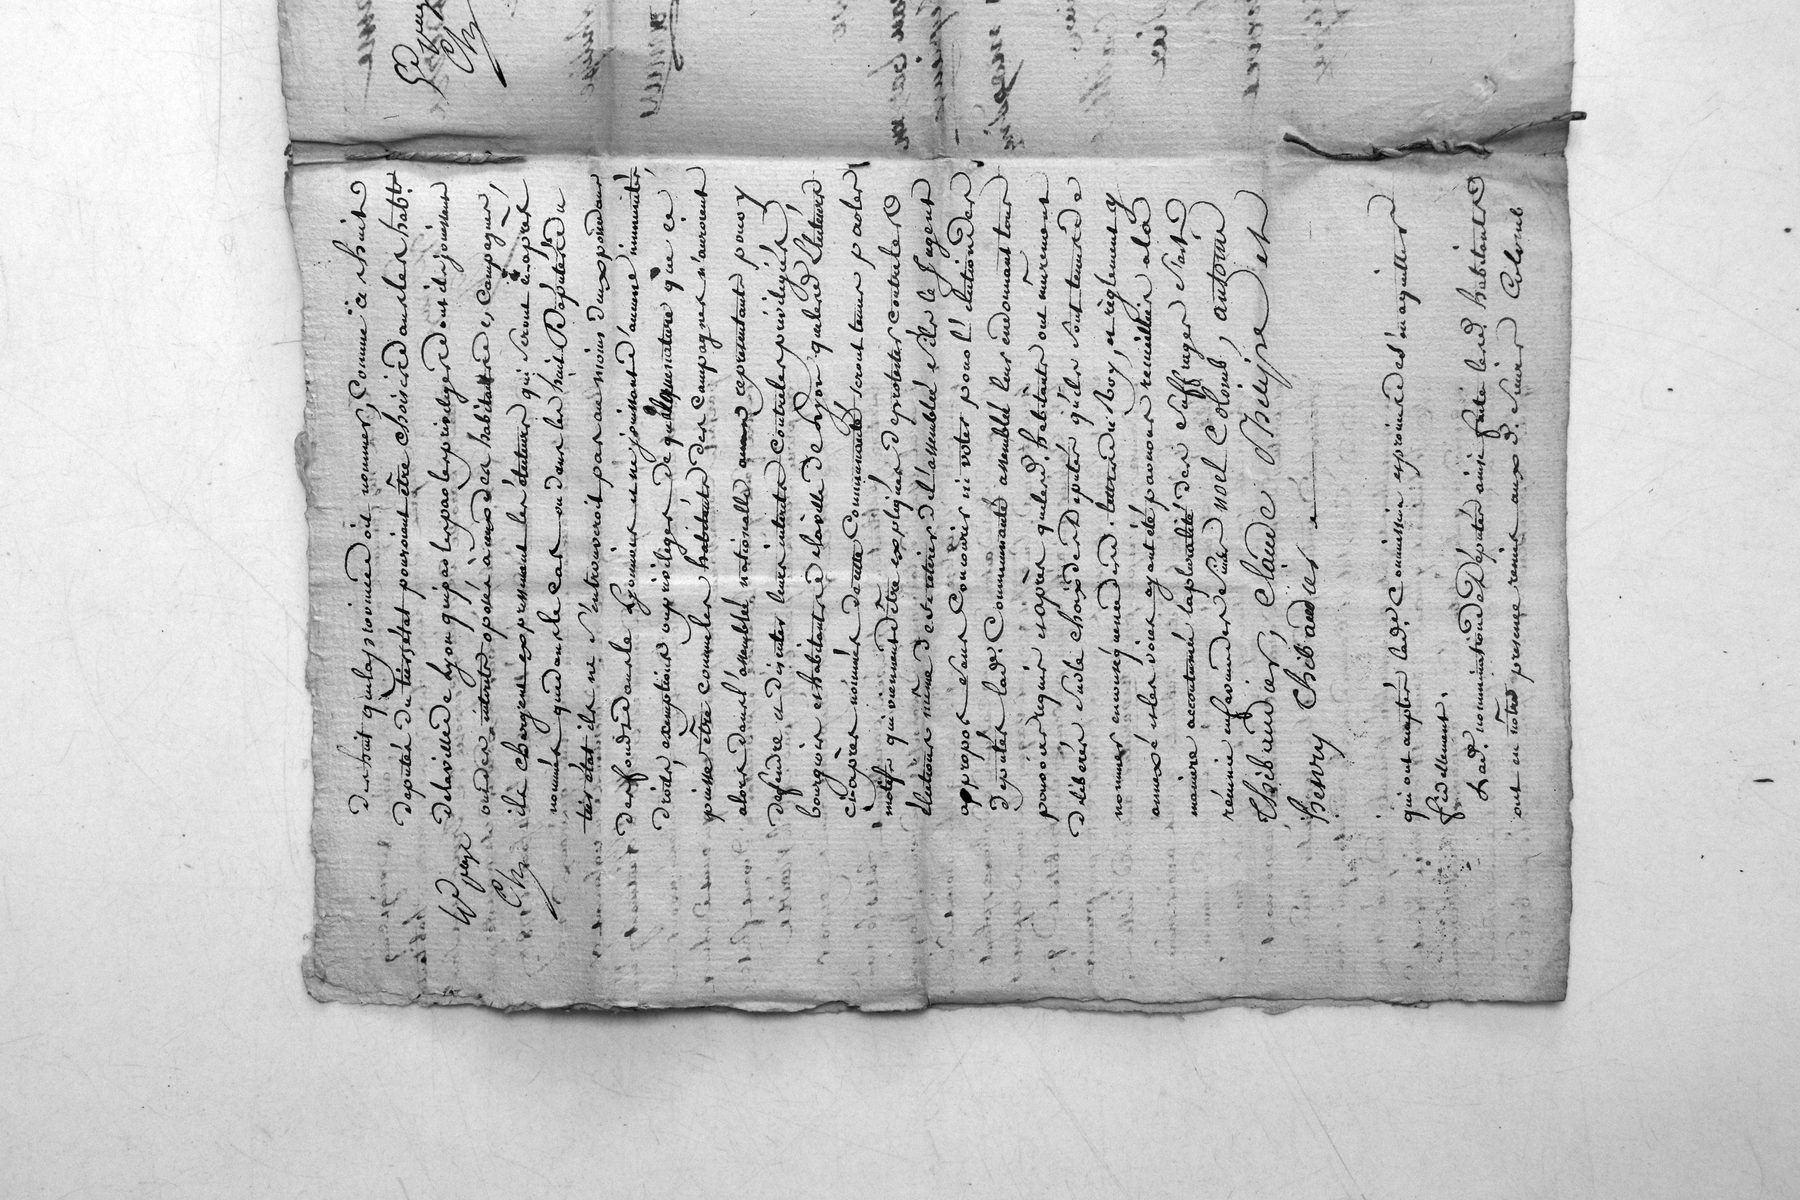 des huit que la province doit nommer, Comme ces huit
deputés du tiers état pouroient être choisis dans les habts
de la ville de Lyon qui par les privileges dont ils jouissent
ont des interets opposés à ceux des habitants des Campagnes,
ils chargent expressement les électeurs qui seront ci après
nommés que dans le cas ou dans les huit Deputés du
tiers état il ne s'en trouveroit pas au moins deux possedans
des fonds dans le Lyonnois et ne jouissant d'aucune immunité,
droits, exemptions ou privileges de quelque nature que ce
puisse être comme les habitants des campagnes n'auroient
alors dans l'assemblée nationalle aucun representant pour y
defendre et discuter leurs interets contre les privilégiés
bourgeois et habitants de la ville de Lyon que les d. Electeurs
ci après nommés de cette Communauté seront tenus par les
motifs qui viennent d'être expliqués de protester contre les
élections même de se retirer de l'assemblée s'ils le Jugent
apropos sans Concourir ni voter pour l'élection des
deputés lad. Communauté assemblée leur en donnant tour
pouvoirs requis et après que les d. habitants ont murement
deliberé sur le choix des Deputés qu'ils sont tenus de
nommer en conséquence des d. lettres du Roy, et règlement y
annexé et les voix ayant été par nous recueillies a la
maniere accoutumée la pluralité des suffrages s'est
réunie en faveur des sieurs noel Colomb, antoine
Thibaudier, Claude Philipe et
henry Thibaudier
qui ont accepté lad. Commission et promis de s'en acquitter
fidellement.
Lad. nomination des Deputés ainsi faite les d. habitants
ont en notre presence remis aux d. sieurs Colomb
page
Ch
page
Ch